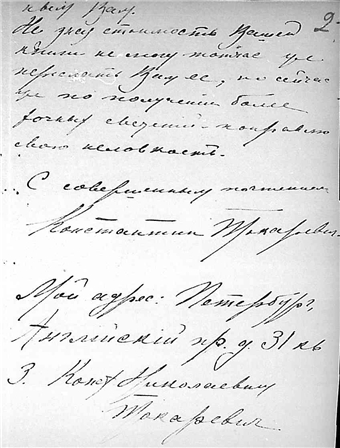 ный Вам.
Не зная стоимость Вашей
книги не могу тотчас же
переслать Вам ее, но сейчас
же по получении более
точных сведений - поправлю
свою неловкость.
С совершенным почтением
Константин Токаревич.
Мой адрес: Петербург,
Английскій пр. д. 31 кв
3. Конст Николаевич
Токаревич.
2